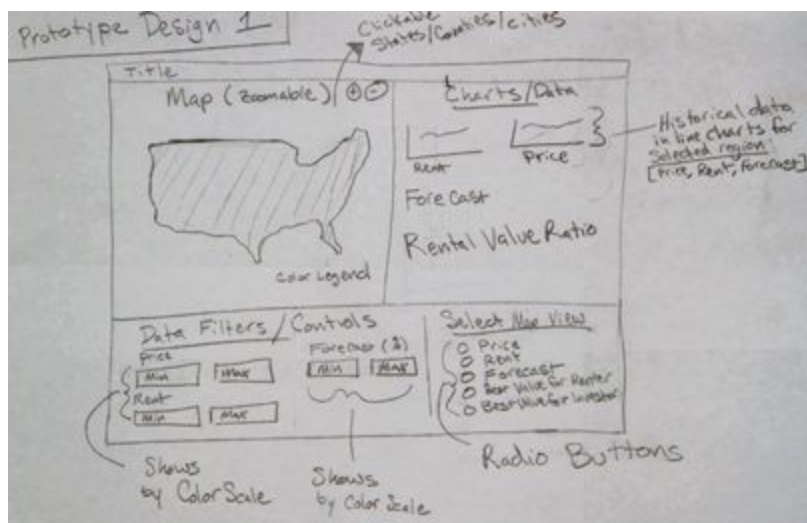 Prototype Design 1
Clickable
States/Counties/cities
Title
Map (Zoomable) + -
Color Legend
Charts/Data
Rent
Price
Forecast
Rental Value Ratio
Historical data
in line charts for
Selected region
[Price, Rent, Forecast]
Data Filters/Controls
Price
Min Max
Rent
Min Max
Forecast (%)
Min Max
Select Map View
Price
Rent
Forecast
Best Value for Renter
Best Value for Investor
Shows
by Color Scale
Shows
by Color Scale
Radio Buttons